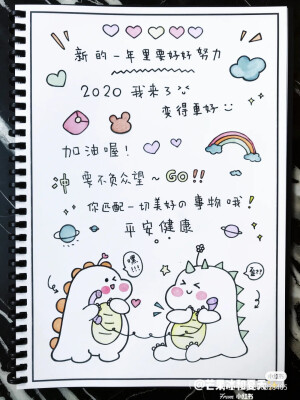 新的一年里要好好努力
2020 我来了
变得更好
加油喔!
冲 要不负众望~GO!!
你匹配一切美好の事物哦!
平安健康
嘿!!!
From 小红书